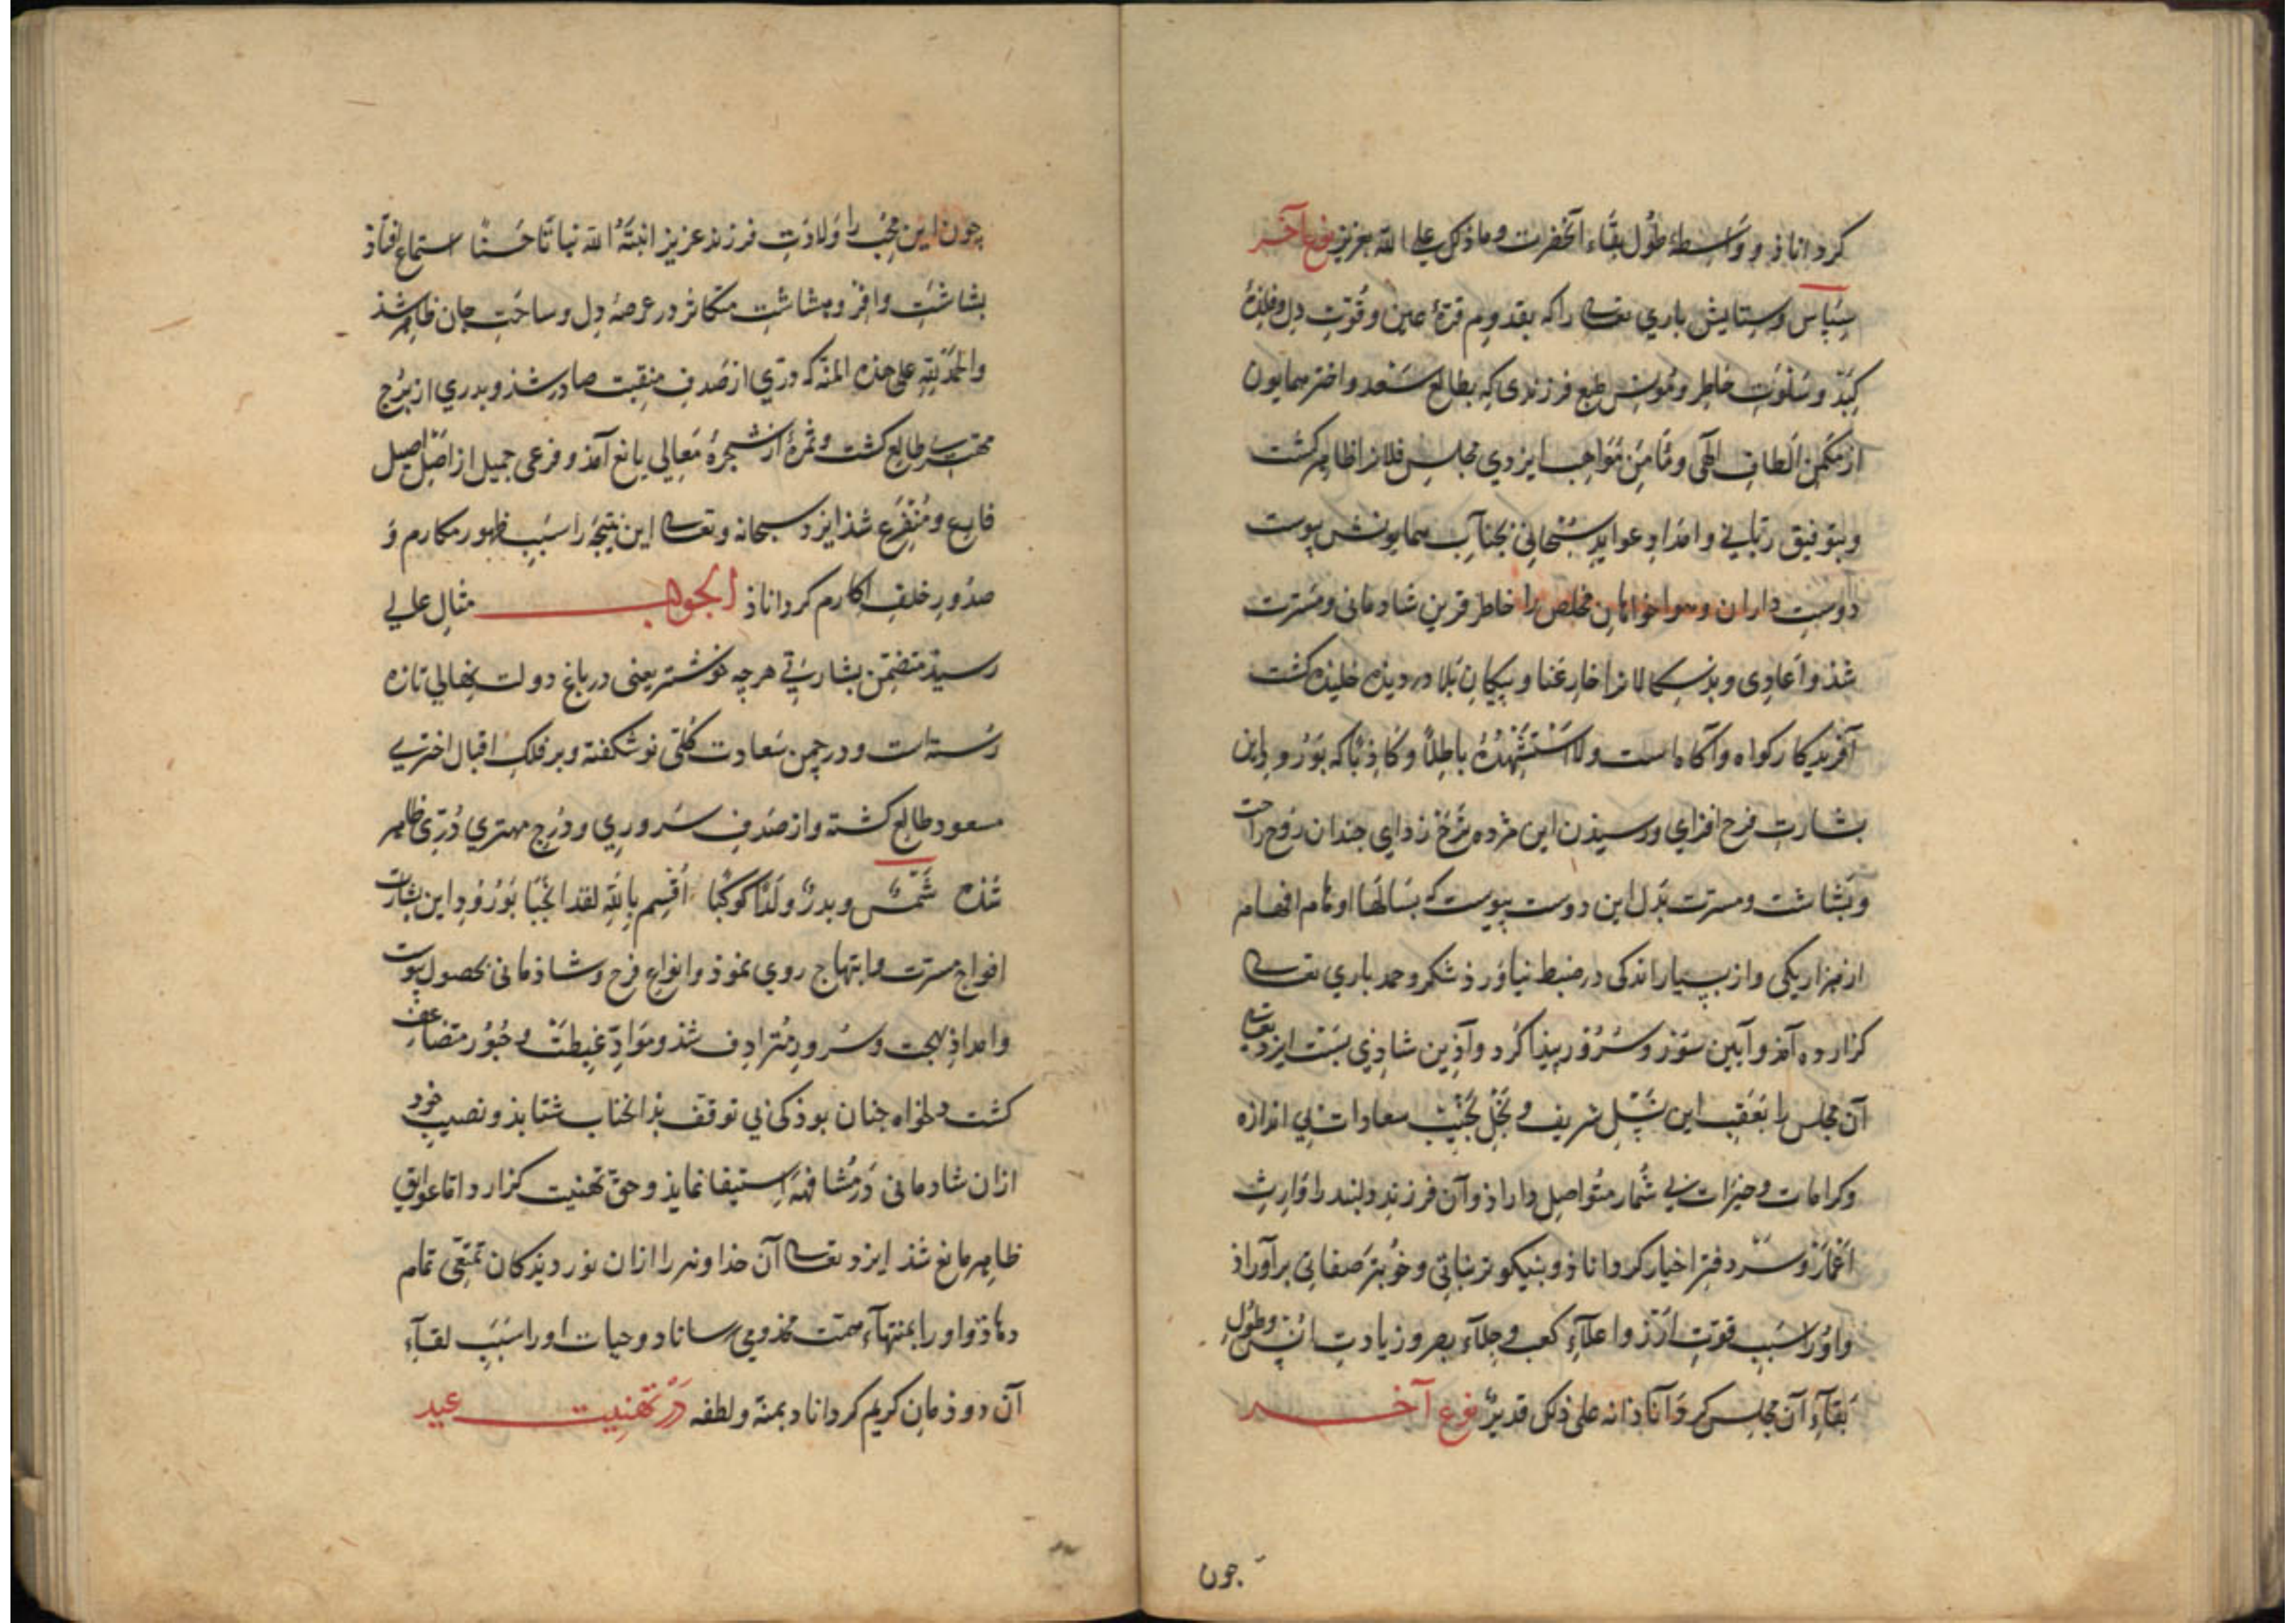 کرداناذ و واسطهٔ طول بقاء آنحضرت وما ذلک علی الله بعزیز نوع آخر
سپاس وستایش باری تعالی را که بقدوم قرّهٔ عین وقوّت دل وفلذهٔ
کبد وسلوت خاطر ومونس طبع فرزندی که بطالع سعد واختر همایون
از مکمن الطاف الهی ومأمن مواهب ایزدی مجلس فلان را ظاهر کشت
وبتوفیق ربّانی وامداد عواید سبحانی بجناب همایونش پیوست
دوست داران وهواخواهان مخلص را خاطر قرین شادمانی ومسرت
شذ واعادی وبدسکالانرا خار عنا وپیکان بلا در دیذه خلیذه کشت
آفریدکار کواه وآکاه است ولا استشهده باطلًا وکاذبًا که بورود این
بشارت فرح افزای ورسیذن این مژده ترح زدای جندان روح راحت
وبشاشت ومسرت بدل این دوست پیوست که بسالها اوهام افهام
از هزار یکی واز بسیار اندکی در ضبط نیاورذ شکر وحمد باری تعالی
کزارده آمذ وآیین سور وسرور پیذا کرد وآذین شاذی بست ایزد تعالی
آن مجلس را بعقب این شبل شریف و نجل نجیب سعادات بی اندازه
وکرامات وخیرات بی شمار متواصل داراذ وآن فرزند دلبند را وارث
اعمار وسردفتر اخیار کرداناذ وبنیکوتر نباتی وخوبتر صفاتی برآوراذ
واورا سبب قوّت ازر واعلاء کعب وجلاء بصر وزیادت انس وطول
بقاء آن مجلس کرداناذ انه علی ذلک قدیرٌ نوع آخر
جون
چون این محب را ولادت فرزند عزیز انبته الله نباتا حسنًا استماع افتاذ
بشاشت وافر وهشاشت متکاثر در عرصهٔ دل وساحت جان ظاهر شذ
والحمد لله علی هذه المنة که درّی از صدف منقبت صادر شذ وبدری از برج
مهتری طالع کشت وثمرهٔ از شجرهٔ معالی یانع آمذ وفرعی جمیل از اصل اصیل
فارع ومتفرع شذ ایزد سبحانه وتعالی این نتیجه را سبب ظهور مکارم و
صدور خلف اکارم کرداناذ الجواب مثال عالی
رسیذ متضمن بشارتی هرچه خوشتر یعنی در باغ دولت نهالی تازه
رسته است ودر چمن سعادت کلی نو شکفته وبر فلک اقبال اختری
مسعود طالع کشته واز صدف سروری ودرج مهتری دُرّی ظاهر
شذه شمسٌ وبدرٌ ولّدا کوکبًا اُقسم بالله لقد انجبا بورود این بشارت
افواج مسرت وابتهاج روی نموذ وانواع فرح وشاذمانی بحصول پیوست
وامداذ بهجت وسرور مترادف شذ وموادّ غبطت وحبور متضاعف
کشت دلخواه جنان بوذ کی بی توقف بذانجناب شتابذ ونصیب خود
ازان شادمانی در مشافهه استیفا نمایذ وحق تهنیت کزارد اما عوایق
ظاهر مانع شذ ایزد تعالی آن خداوند را ازان نور دیذکان تمتّعی تمام
دهاذ واورا بمنتهاء همت مخدومی رساناد وحیات اورا سبب لقاء
آن دوذمان کریم کرداناد بمنه ولطفه در تهنیت عید